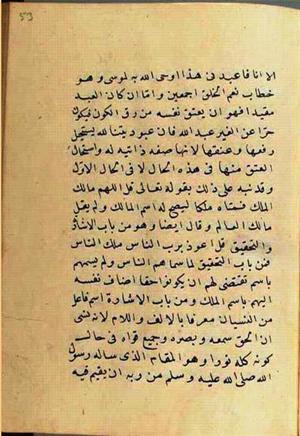 53
الا انا فاعبدنى هذا اوحى الله به لموسى وهو
خطاب نعم الخلق اجمعين واما ان كان العبد
مقيدا فهو ان يعتق نفسه من رق الكون فيكون
حرا عن الغير عبد الله فان عبوديتنا لله يستحيل
رفعها وعتقها لانها صفة ذاتية له واستحال
العتق منها فى هذه الحال لا فى الحال الاول
وقد نبه على ذلك بقوله تعالى قل اللهم مالك
الملك فسماه ملكا ليصح له اسم المالك ولم يقل
مالك العالم وقال ايضا وهو من باب الاشارة
والتحقيق قل اعوذ برب الناس ملك الناس
فمن باب التحقيق لما سماهم الناس ولم يسمهم
باسم تقتضى لهم ان يكونوا حقا اضاف نفسه
اليهم باسم الملك ومن باب الاشارة اسم فاعل
من النسيان معرفا بالالف واللام لانه نسى
ان الحق سمعه وبصره وجميع قواه فى حال
كونه كله نورا وهو المقام الذى ساله رسول
الله صلى الله عليه وسلم من ربه ان يقيمه فيه